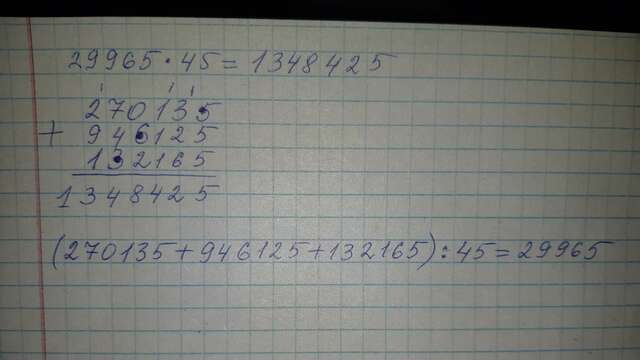 29965 · 45 = 1348425
1 1 1
270135
+ 946125
132165
1348425
(270135+946125+132165):45=29965